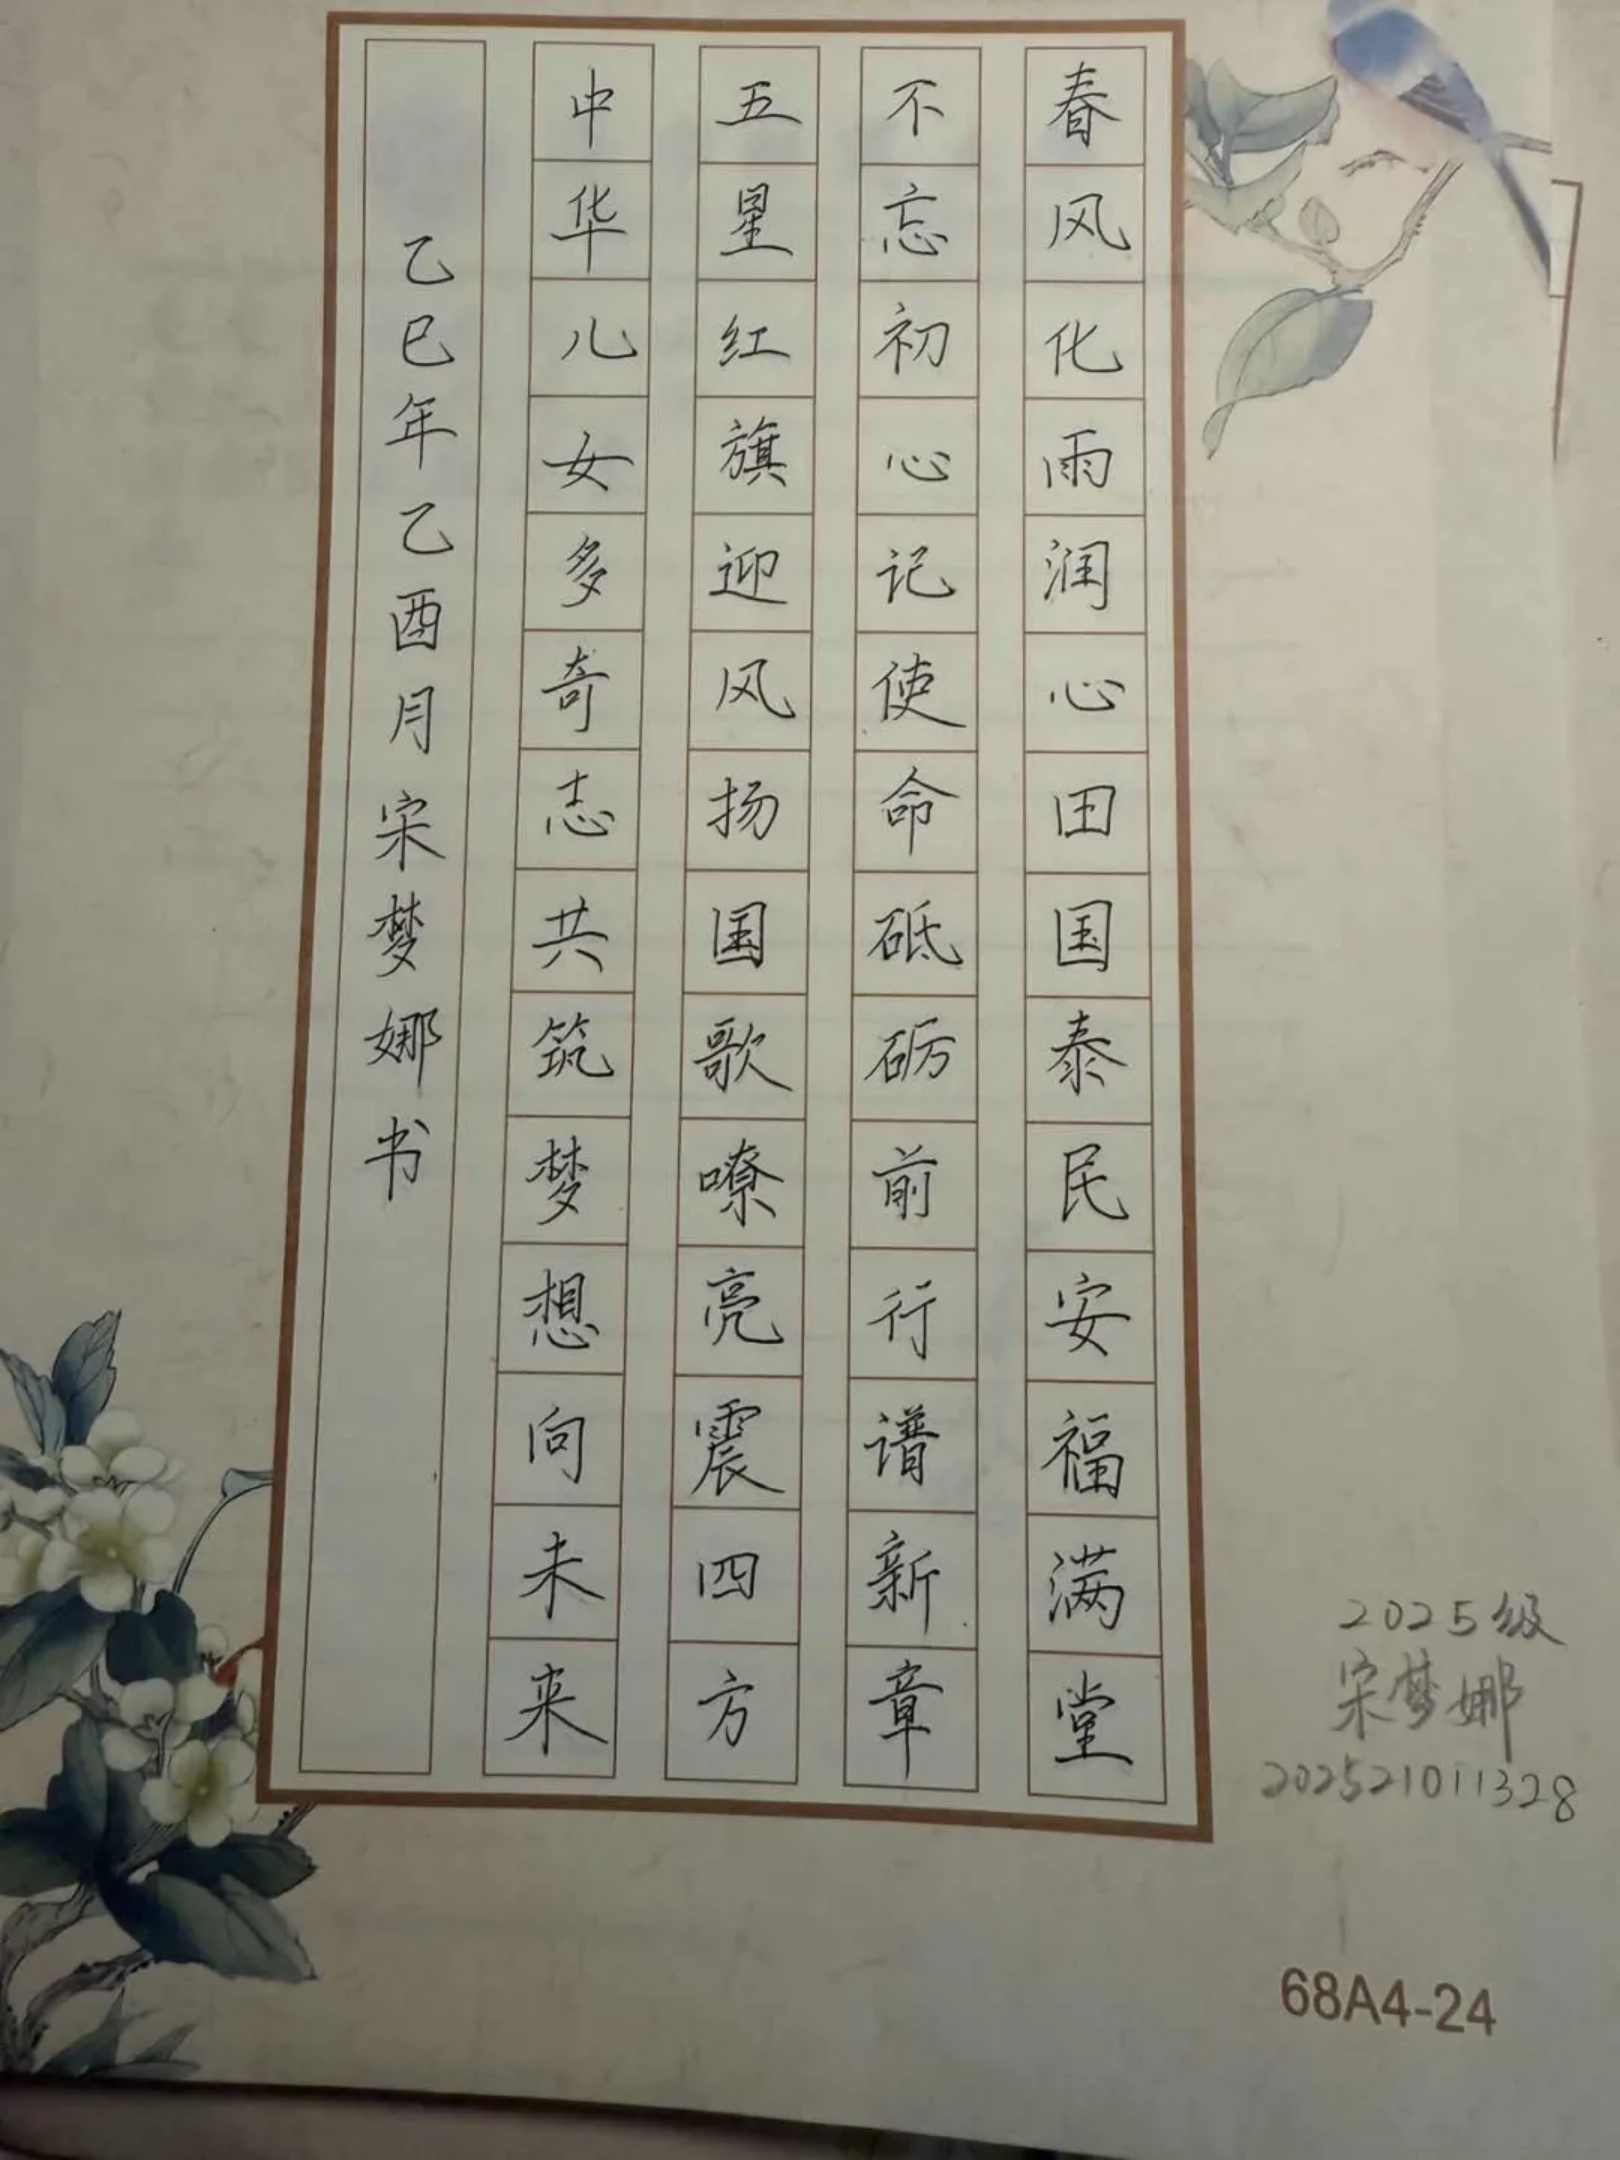 春风化雨润心田国泰民安福满堂
不忘初心记使命砥砺前行谱新章
五星红旗迎风扬国歌嘹亮震四方
中华儿女多奇志共筑梦想向未来
乙巳年乙酉月宋梦娜书
2025级
宋梦娜
202521011328
68A4-24